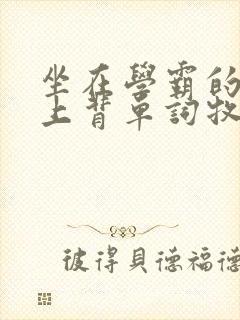 坐在學霸的
上背單詞牧
彼得貝德福德